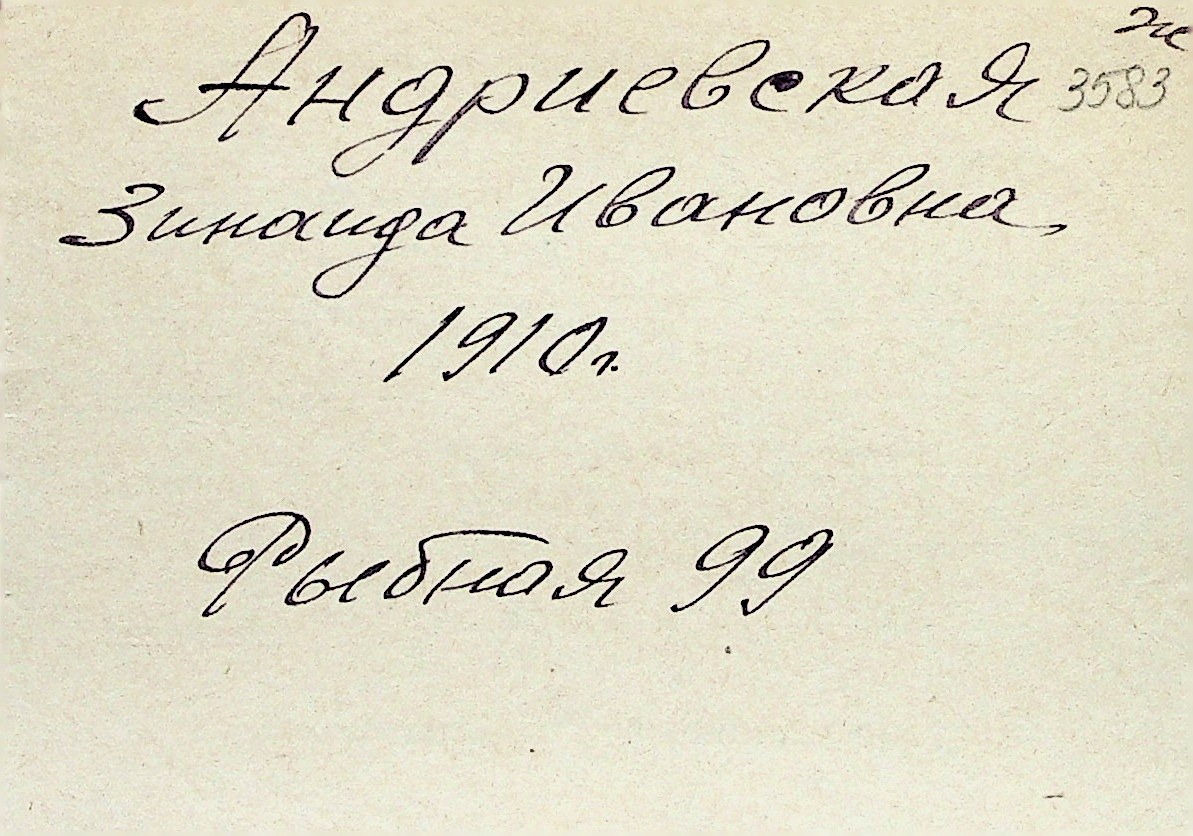 Андриевская 3583
Зинаида Ивановна
1910г.
Рыбная 99